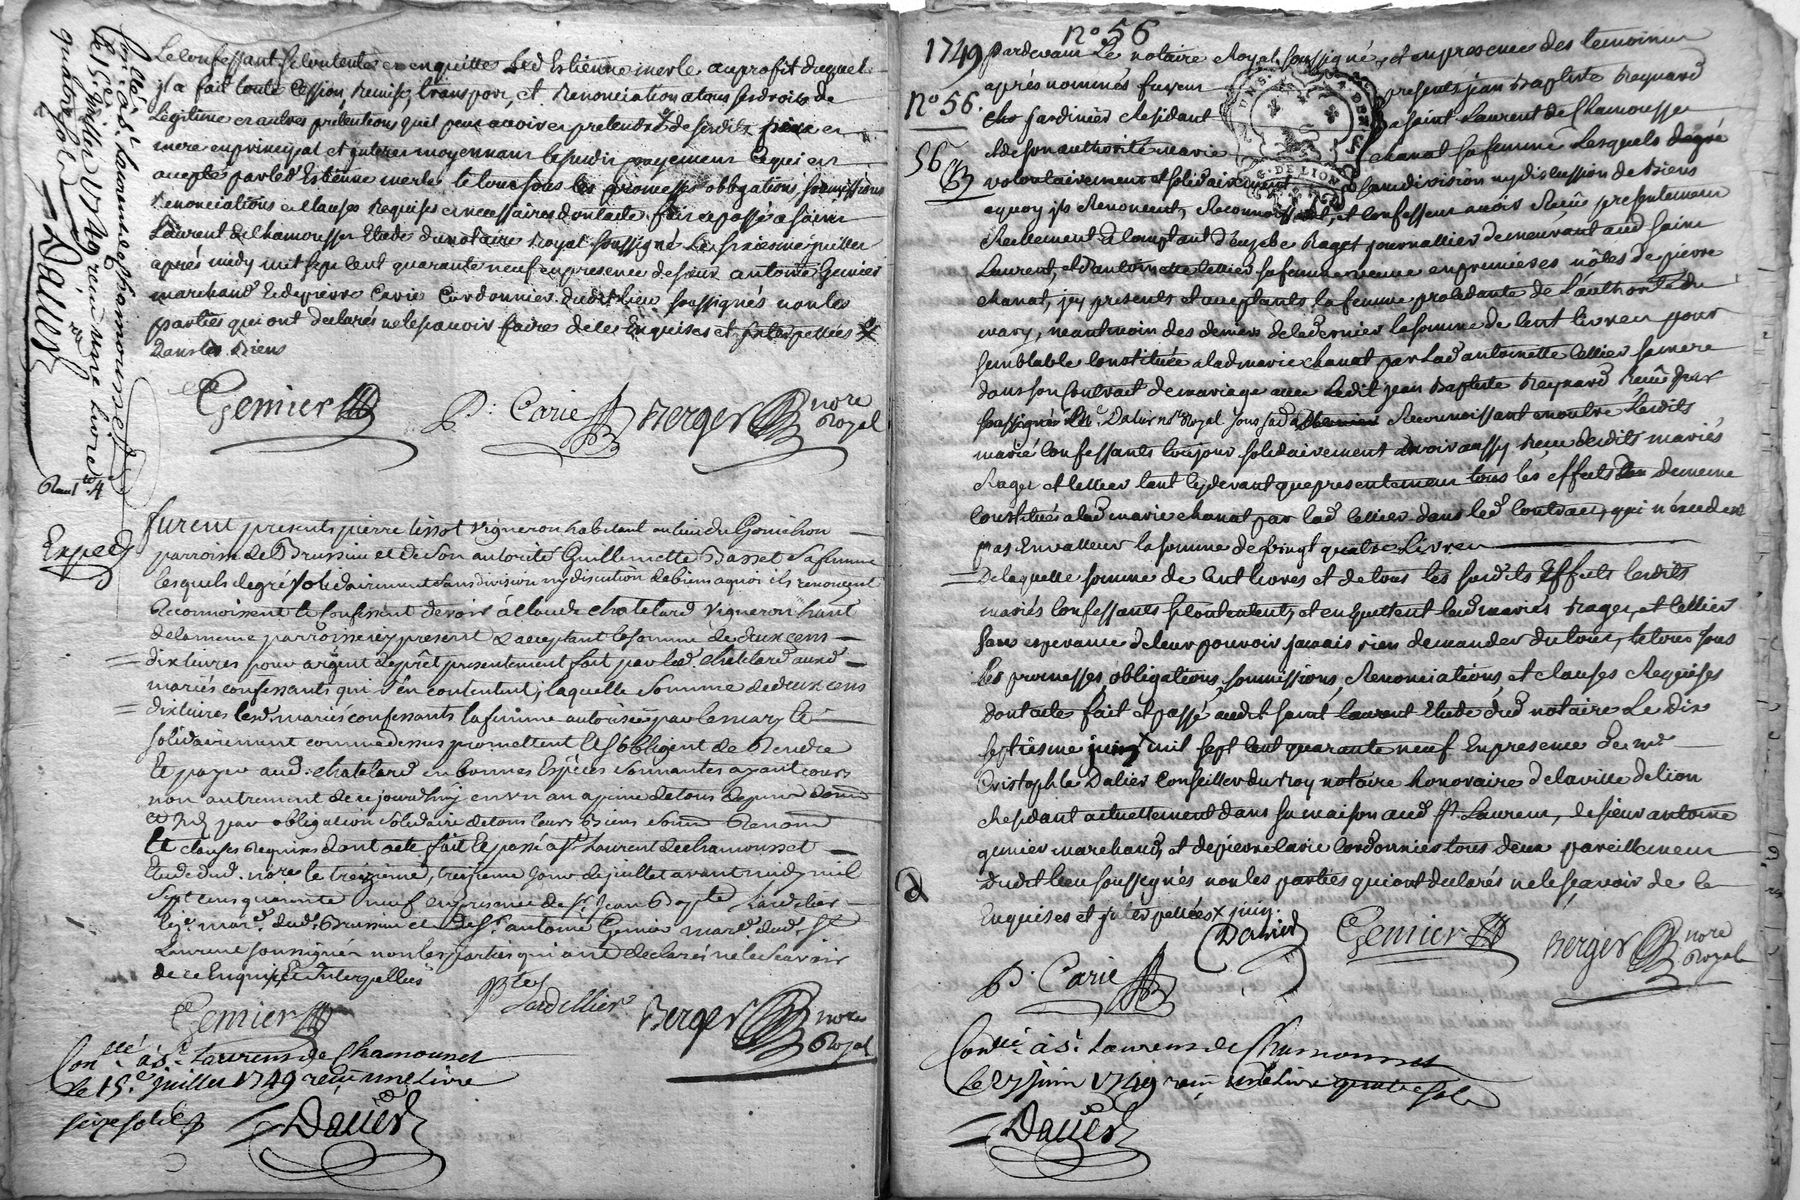 Con.llé à St. Laurent de Chamousset
le 15e juillet 1749 reçu une livre
quatorze sols
Davier
Le confessant se contente en quitte led Estienne merle au profit duquel
il a fait toute Cession Remise, transport, et Renonciation a tous ses droits de
Legitime et autres prétentions quil peut avoir et prétendre de sesdits père et
mere en principal et interets moyennant le susdit payement ce qui est
accepté par led Estienne merle le tout sous les promesses obligations soumissions
Renonciations et clauses Requises et necessaires dont acte fait et passé a Saint
Laurent de Chamousset Etude du notaire Royal soussigné Le sixieme juillet
aprés midy mil sept cent quarante neuf en presence de sieur antoine Gemier
marchand et de pierre Carie Cordonnier dudit lieu soussignés non les
parties qui ont declarés ne le sçavoir faire de ce Enquises et interpellées
Dans les Biens
Gemier P. Carie Berger nore Royal
Exped
furent presents pierre tissot vigneron habitant au lieu du Gonichon
parroisse de Brussieu et de son autorité Guillemette Basset sa femme
lesquels de gré solidairement sans division ny discution de biens a quoi ils renoncent
Reconnoissent et Confessent devoir à Claude Chatelard vigneron hant
de la meme parroisse icy present et acceptant la somme de deux cens
dix livres pour argent de prêt presentement fait par led. Chatelard auxd
mariés confessants qui s'en contentent, laquelle somme de deux cens
dix livres lesd. mariés confessants la femme autorisée par le mary et
solidairement comme dessus promettent et s'obligent de Rendre
Et payer aud. Chatelard en bonnes Espèces sonnantes ayant cours
non autrement de ce jourd'huy en un an a peine de tous depens dom
et par obligation solidaire de tous leurs Biens Soum Renon
Et clauses Requises dont acte fait et passé a St Laurent de chamousset
Etude dud. nore le treizieme, treizieme jour de juillet avant midy mil
sept cens quarante neuf en presence de Sr. Jean Bapte Lardellier
mar. dud. Brussieu et de Sr. antoine Gemier mar. dud. St
Laurent soussignés non les parties qui ont declarés ne le scavoir
de ce Enquises et Interpellées
Gemier Btes Lardellier Berger nore Royal
Con.llé à St. Laurens de Chamousset
le 15e juillet 1749 reçu une livre
seize sols
Davier
no 56
1749 pardevant Le notaire Royal soussigné, et en presence des temoins
no 56. aprés nommés furent presents jean Baptiste Reynard
jardinier Residant a saint Laurent de Chamousset
56 et de son authorité marie chanat sa femme Lesquels de gré
volontairement et solidairement sans division ny discussion de Biens
a quoy ils Renoncent, Reconnoissent, et Confessent avoir Receu presentement
Reellement et Comptant d'Eusebe Raget journallier demeurant aud Saint
Laurent, et d'antoinette Cellier sa femme veuve en premieres nôces de pierre
chanat, icy presents et acceptants la femme procédante de L'authorité du
mary, neantmoin des deniers de la derniere la somme de Cent livres pour
semblable Constituée a lad marie chanat par lad antoinette Cellier sa mere
dans son Contrait de mariage avec Ledit jean Baptiste Reynard Receu par
Dalier nre Royal sous sa datte Reconnoissant en outre Lesdits
mariés Confessants toujour solidairement avoir aussy Receu desdits mariés
Raget et Cellier tant cy devant que presentement tous les effets
Constitués a lad marie chanat par lad Cellier dans led Contrait, qui n'excedent
pas En valleur la somme de vingt quatre Livres
De laquelle somme de Cent livres et de tous les susdits Effets lesdits
mariés Confessants se contentent, et en quittent lesd mariés Raget, et Cellier
sans esperance de leur pouvoir jamais rien demander du tout, le tout sous
Les promesses, obligations, soumissions, Renonciations, et clauses Requises
dont acte fait et passé audit Saint Laurent Etude dud notaire Le dix
septiesme juin mil sept Cent quarante neuf En presence de mr
Cristophle Dalier Conseiller du Roy notaire honoraire de la ville de lion
Residant actuellement dans sa maison aud St. Laurent, de sieur antoine
gemier marchand, et de pierre Carie Cordonnier tous deux pareillement
dudit lieu soussignés non les parties qui ont declarés ne le sçavoir de ce
Enquises et interpellées x juin.
Dalier Gemier Berger nore Royal
P. Carie
Con.llé à St. Laurens de Chamousset
Le 27 juin 1749 reçu une livre quatre sols
Davier